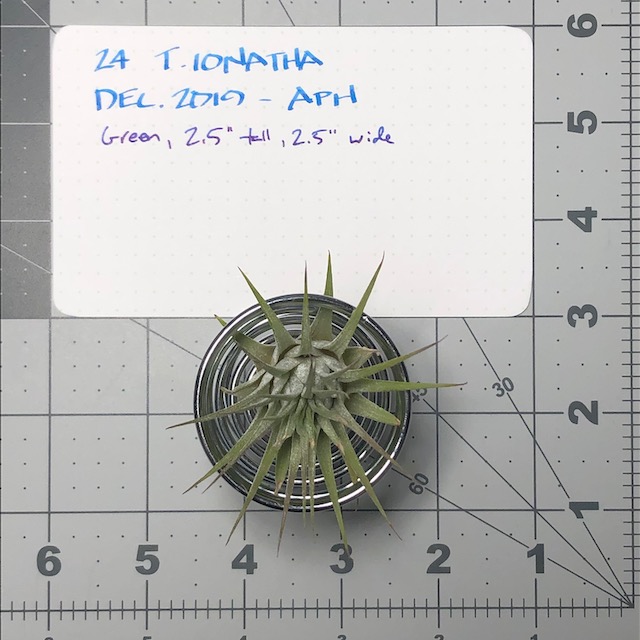 24 T. IONATHA
DEC. 2019 - APH
Green, 2.5" tall, 2.5" wide
6
5
4
3
2
1
30
45
60
6 5 4 3 2 1
5 4 3 2 1